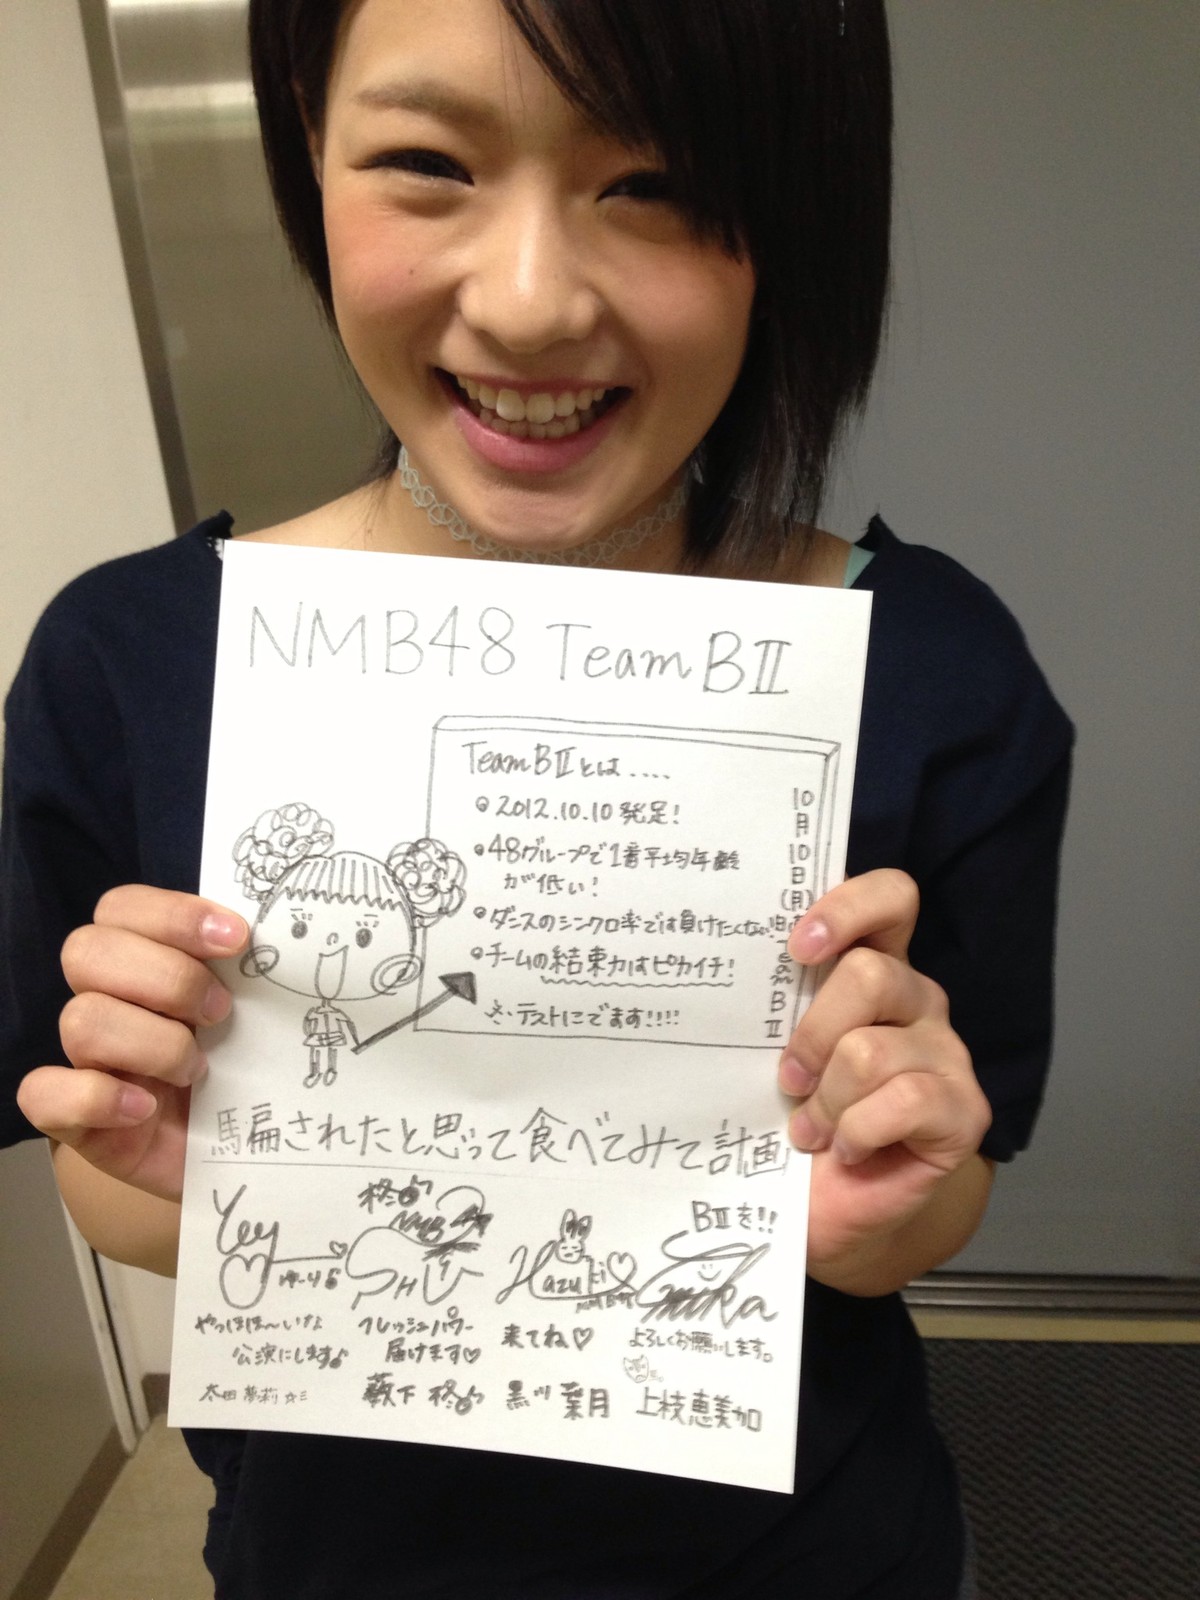 NMB48 Team BⅡ
Team BⅡとは....
2012.10.10発足!
48グループで1番平均年齢
が低い!
ダンスのシンクロ率では負けたくない!
チームの結束力はピカイチ!
テストにでます!!!!
10月10日(月)
Team BⅡ
馬扁されたと思って食べてみて計画
Yey
ゆーり
やっほほ〜いな
公演にします♪
太田夢莉☆
柊
NMB48
SHU
フレッシュパワー
届けます♡
藪下 柊
Hazuki♡
NMB48
来てね♡
黒川葉月
BⅡを!!
Emika
よろしくお願いします。
上枝恵美加